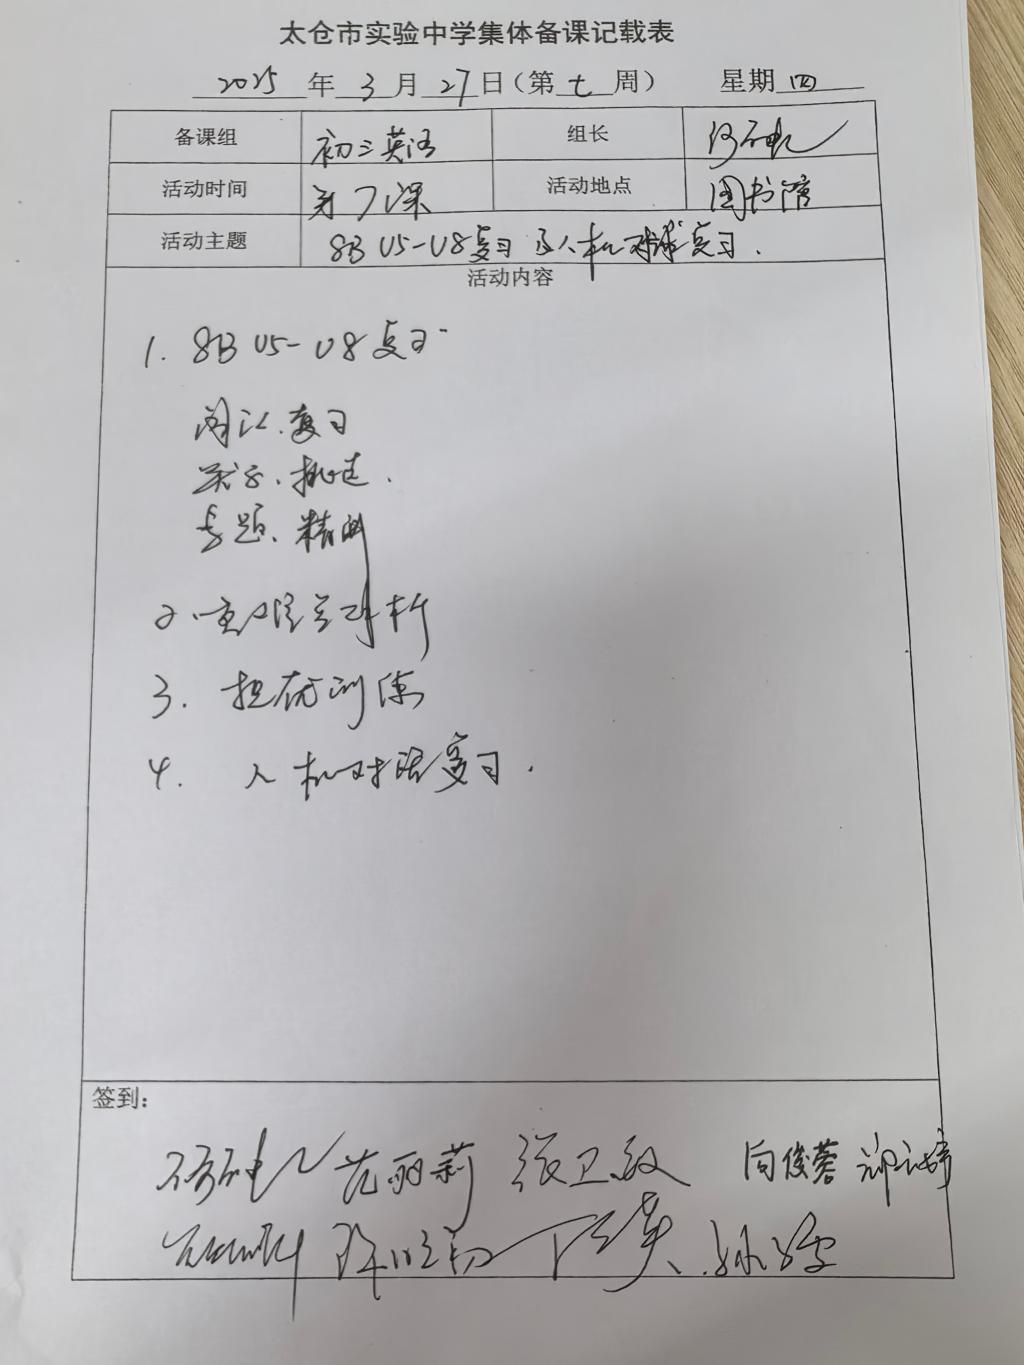 太仓市实验中学集体备课记载表
2025 年 3 月 27 日（第 七 周） 星期 四
备课组 初三英语 组长
活动时间 第7课 活动地点 图书馆
活动主题 8B U5-U8复习 及人机对话复习.
活动内容
1. 8B U5-U8复习
阅读、复习
、挑选.
专题、精
2. 重难点解析
3. 提优训练
4. 人机对话复习.
签到：
范丽莉 张卫敏 向俊蓉